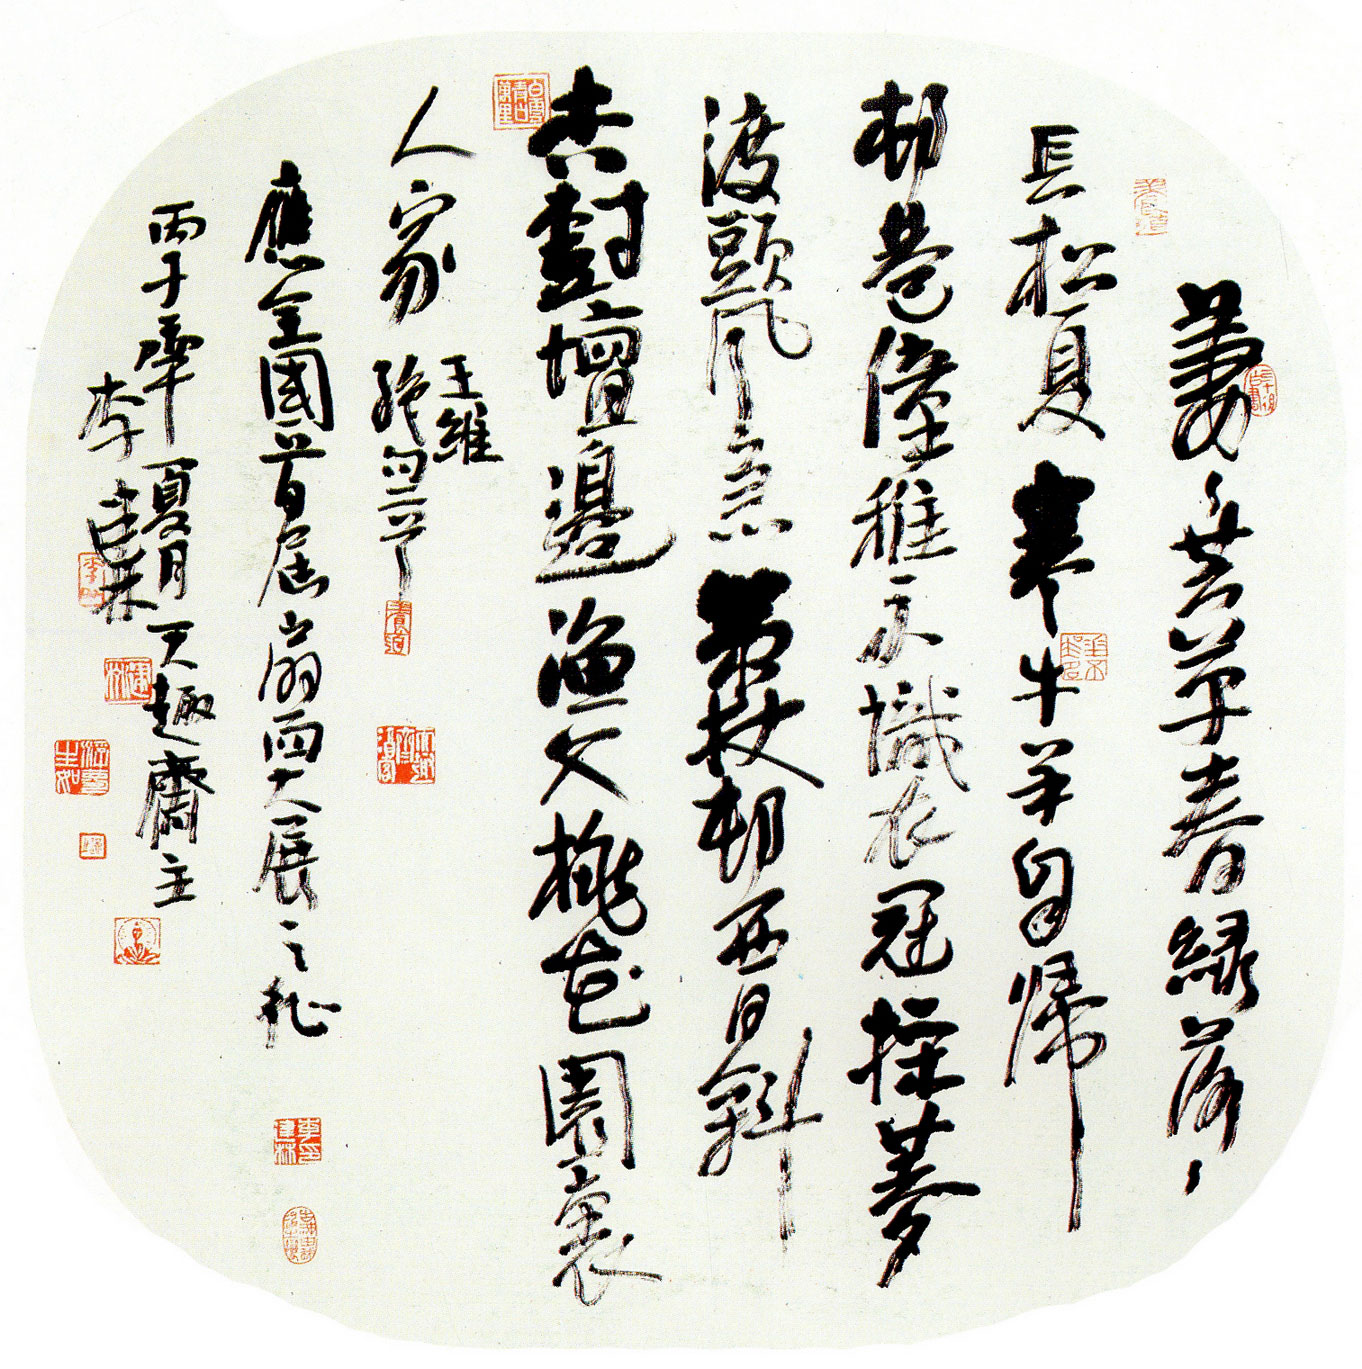 萋〻芳草春綠落〻
長松夏寒牛羊自歸
邨巷僮稚不識衣冠採菱
渡頭風急策杖邨西日斜
杏樹壇邊漁父桃花園裏
人家
王維
絕句二首
應全國首屆扇面大展之征
丙子夏月天趣齋主
李建林
李印建林